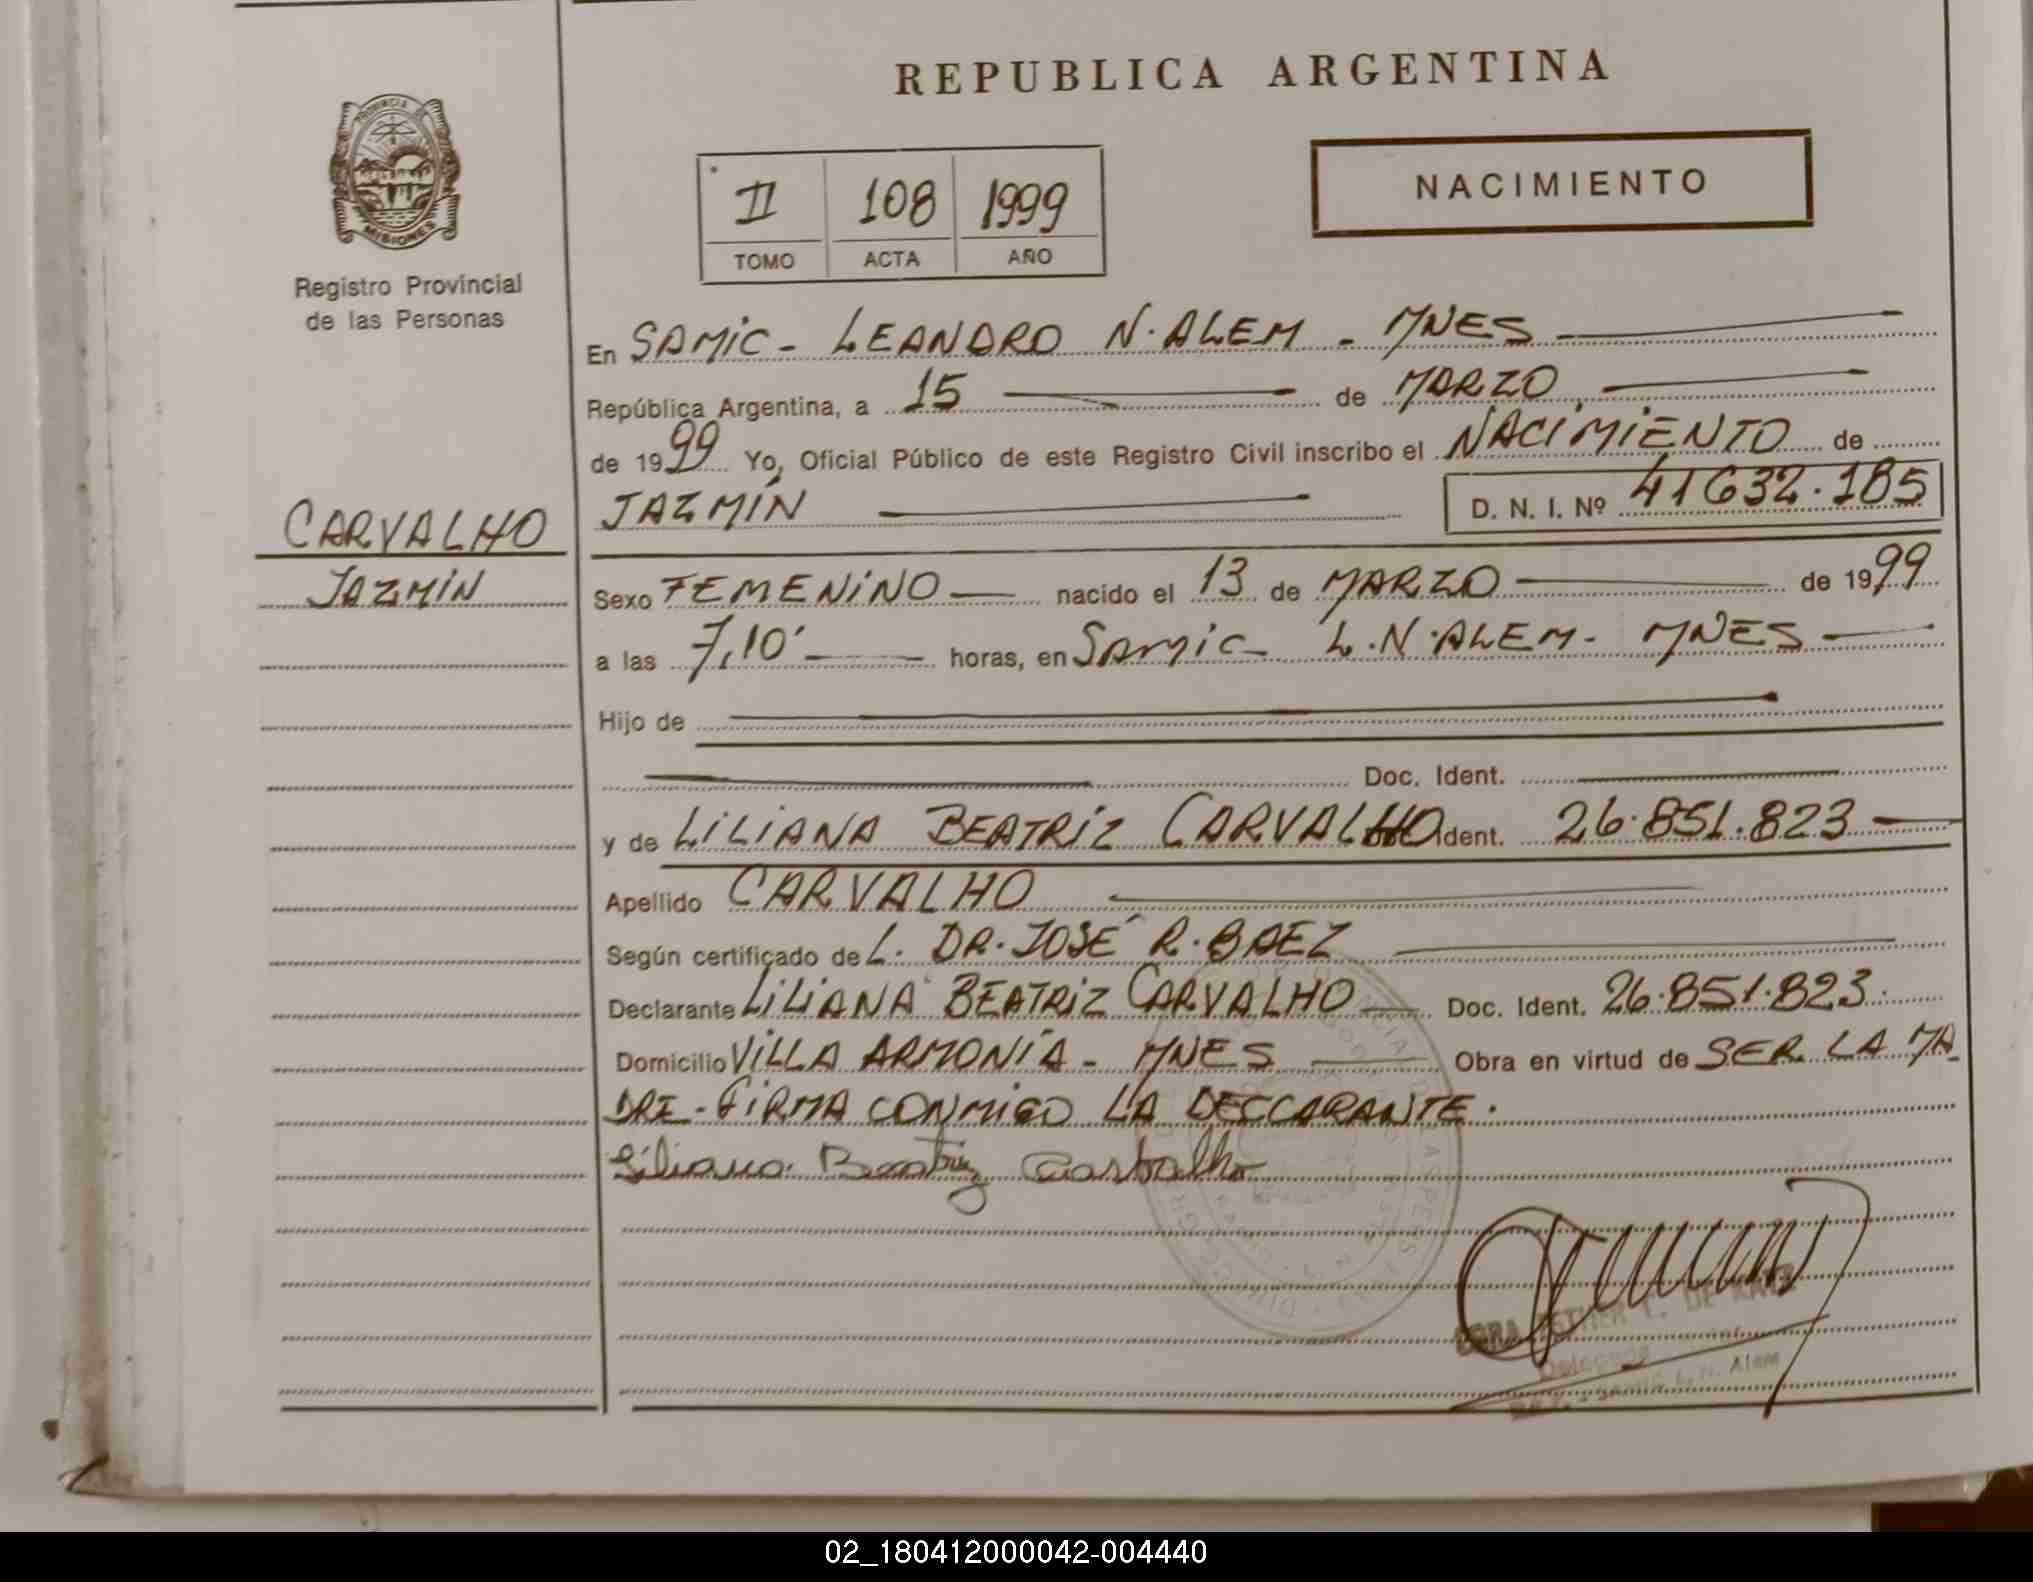 REPUBLICA ARGENTINA
PROVINCIA DE
MISIONES
Registro Provincial
de las Personas
II 108 1999
TOMO ACTA AÑO
NACIMIENTO
En SAMIC - LEANDRO N. ALEM - MNES
República Argentina, a 15 de MARZO
de 1999 Yo, Oficial Público de este Registro Civil inscribo el NACIMIENTO de
JAZMÍN D. N. I. Nº 41632.185
CARVALHO
JAZMIN
Sexo FEMENINO nacido el 13 de MARZO de 1999
a las 7,10' horas, en SAMIC - L.N. ALEM - MNES
Hijo de
Doc. Ident.
y de LILIANA BEATRIZ CARVALHO Ident. 26.851.823
Apellido CARVALHO
Según certificado de L. DR. JOSÉ R. BAEZ
Declarante LILIANA BEATRIZ CARVALHO Doc. Ident. 26.851.823.
Domicilio VILLA ARMONÍA - MNES Obra en virtud de SER LA MA
DRE - FIRMA CONMIGO LA DECCARANTE.
Liliana Beatriz Carbalho
DE
Delegada
L. N. Alem
02_180412000042-004440